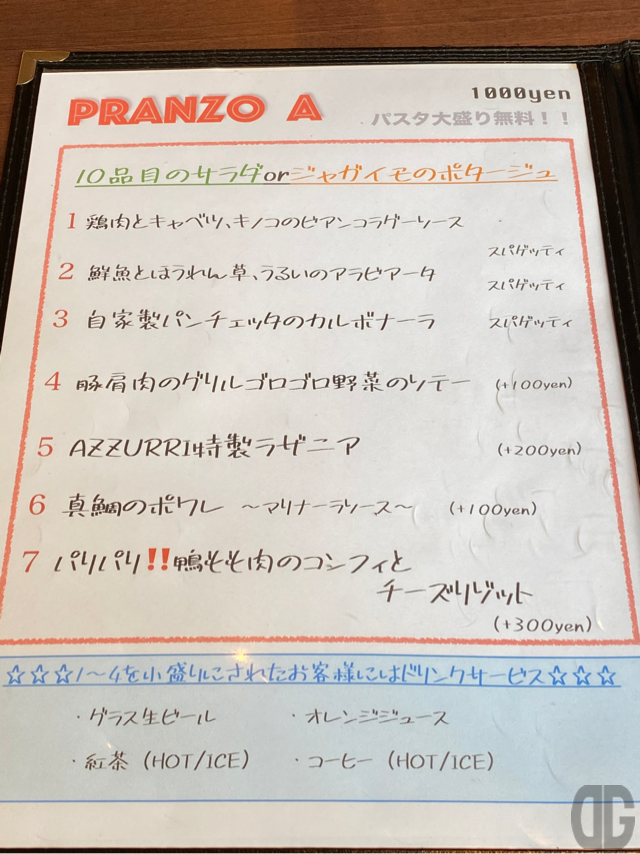 PRANZO A
1000yen
パスタ大盛り無料！！
10品目のサラダorジャガイモのポタージュ
1 鶏肉とキャベツ、キノコのビアンコラグーソース
スパゲッティ
2 鮮魚とほうれん草、うるいのアラビアータ
スパゲッティ
3 自家製パンチェッタのカルボナーラ スパゲッティ
4 豚肩肉のグリルゴロゴロ野菜のソテー (+100yen)
5 AZZURRI特製ラザニア (+200yen)
6 真鯛のポワレ ～マリナーラソース～ (+100yen)
7 パリパリ!!鴨もも肉のコンフィと
チーズリゾット
(+300yen)
☆☆☆1～4を小盛りにされたお客様にはドリンクサービス☆☆☆
・グラス生ビール ・オレンジジュース
・紅茶（HOT/ICE） ・コーヒー（HOT/ICE）
DG